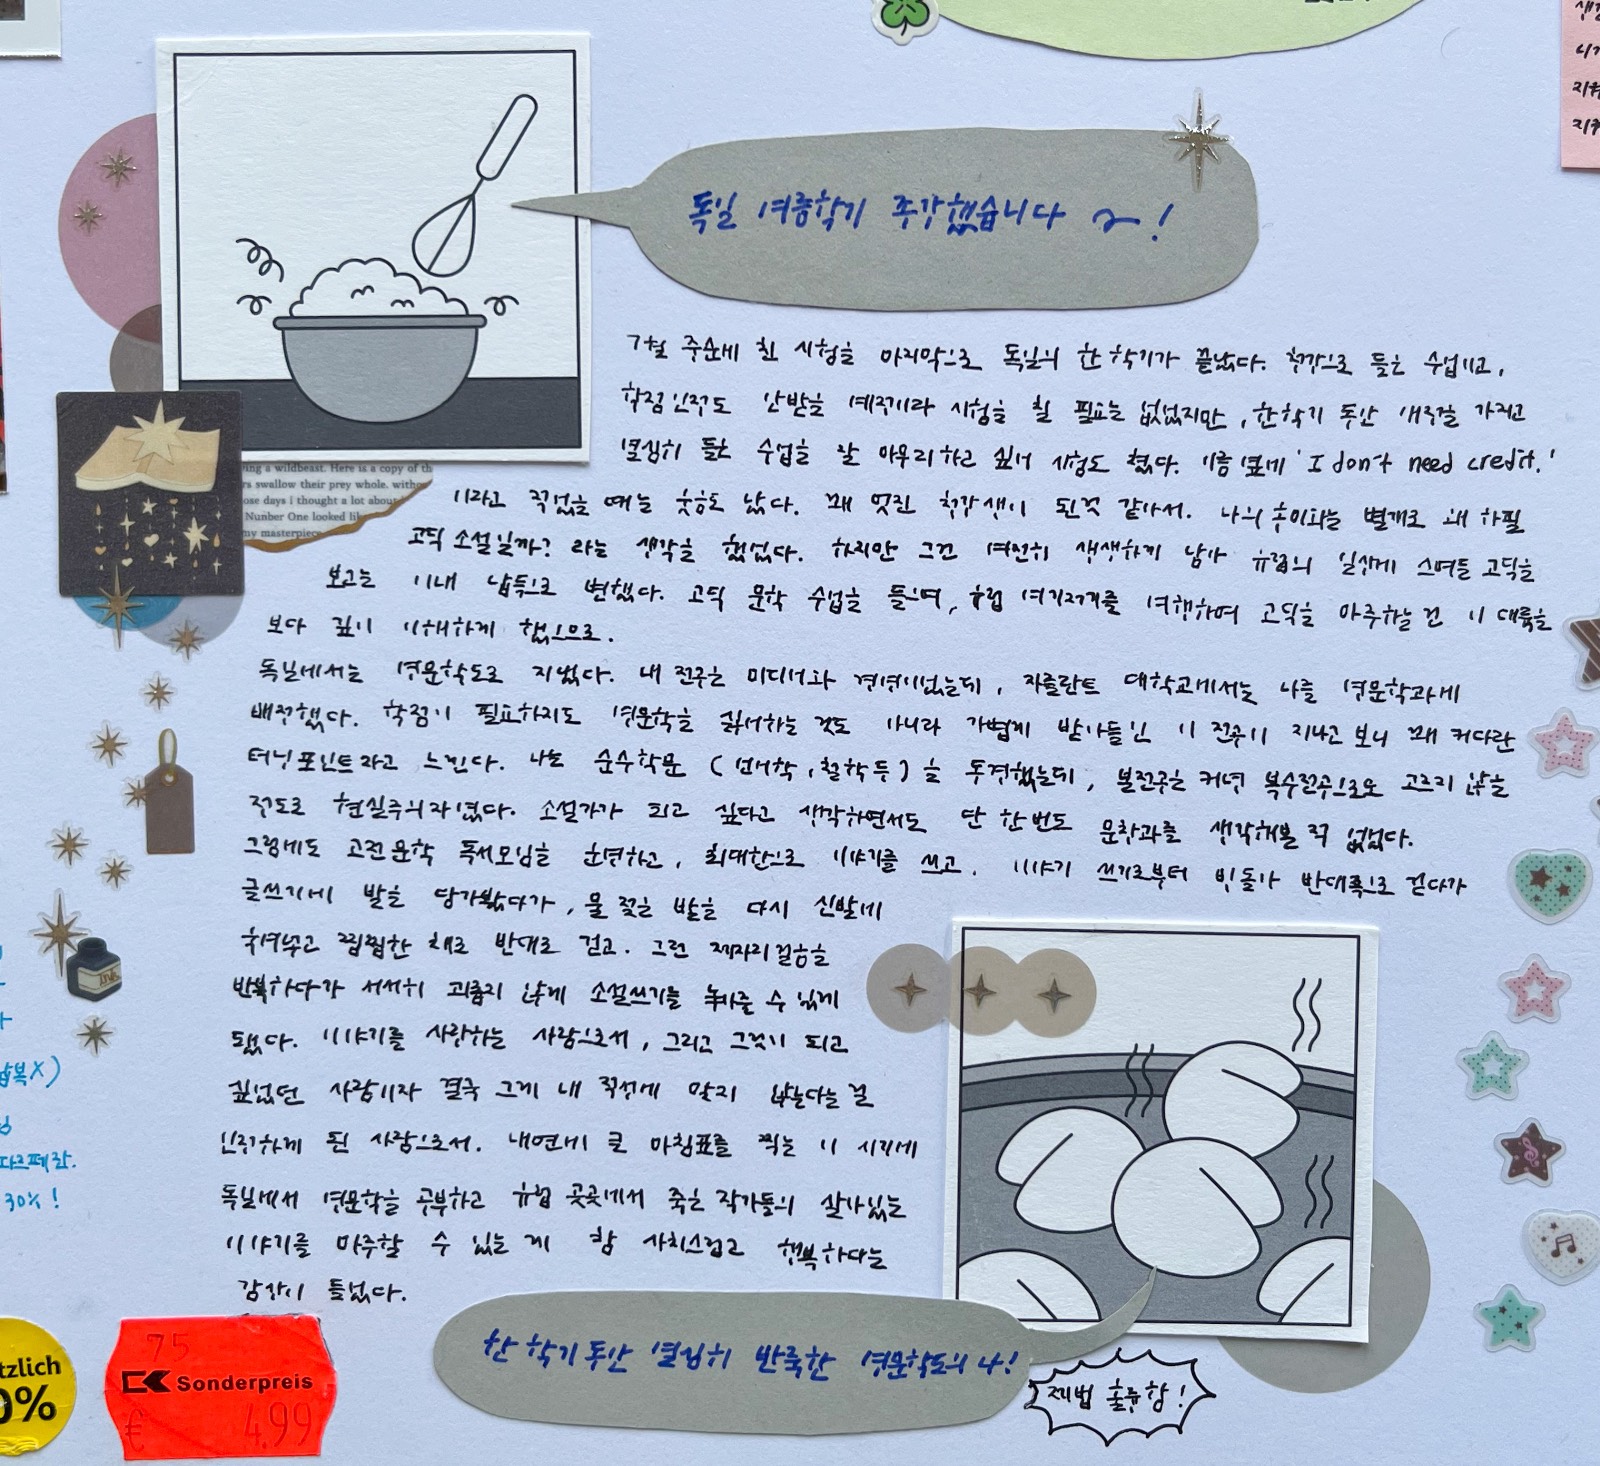 독일 여름학기 종강했습니다 ~!
7월 중순에 친 시험을 마지막으로 독일의 한 학기가 끝났다. 청강으로 듣는 수업이고,
학점인정도 안받을 예정이라 시험을 칠 필요는 없었지만, 한학기 동안 애정을 가지고
열심히 들은 수업을 잘 마무리하고 싶어 시험도 쳤다. 이름 옆에 'I don't need credit.'
이라고 적었을 때는 웃음도 났다. 꽤 멋진 청강생이 된것 같아서. 나의 흥미와는 별개로 왜 하필
고딕소설일까? 라는 생각을 했었다. 하지만 그건 여전히 생생하게 남아 유럽의 일상에 스며든 고딕을
보고는 이내 납득으로 변했다. 고딕 문학 수업을 들으며, 유럽 여기저기를 여행하며 고딕을 마주하는건 이 대륙을
보다 깊이 이해하게 했으므로.
독일에서는 영문학도로 지냈다. 내 전공은 미디어와 경영이었는데, 자를란트 대학교에서는 나를 영문학과에
배정했다. 학점이 필요하지도 영문학을 싫어하는 것도 아니라 가볍게 받아들인 이 전공이 지나고 보니 꽤 커다란
터닝포인트라고 느낀다. 나는 순수학문 (언어학, 철학 등)을 동경했는데, 본전공은 커녕 복수전공으로도 고르지 않을
정도로 현실주의자였다. 소설가가 되고 싶다고 생각하면서도 단 한번도 문창과를 생각해본 적 없었다.
그럼에도 고전문학 독서모임을 운영하고, 최대한으로 이야기를 쓰고. 이야기 쓰기로부터 빙돌아 반대쪽으로 걷다가
글쓰기에 발을 담가봤다가, 물 젖은 발을 다시 신발에
욱여넣고 찝찝한 채로 반대로 걷고. 그런 제자리걸음을
반복하다가 서서히 괴롭지 않게 소설쓰기를 놓아줄 수 있게
됐다. 이야기를 사랑하는 사람으로서, 그리고 그것이 되고
싶었던 사람이자 결국 그게 내 적성에 맞지 않는다는 걸
인정하게 된 사람으로서. 내면에 큰 마침표를 찍는 이 시기에
독일에서 영문학을 공부하고 유럽 곳곳에서 죽은 작가들의 살아있는
이야기를 마주할 수 있는 게 참 사치스럽고 행복하다는
감상이 들었다.
한 학기동안 열심히 반죽한 영문학도의 나!
제법 훌륭함!
ing a wildbeast. Here is a copy of th
rs swallow their prey whole. withou
ose days i thought a lot about
Nunber One looked li
my masterpiece
Ink
X)
30% !
tzlich
0%
75
CK Sonderpreis
€ 4.99